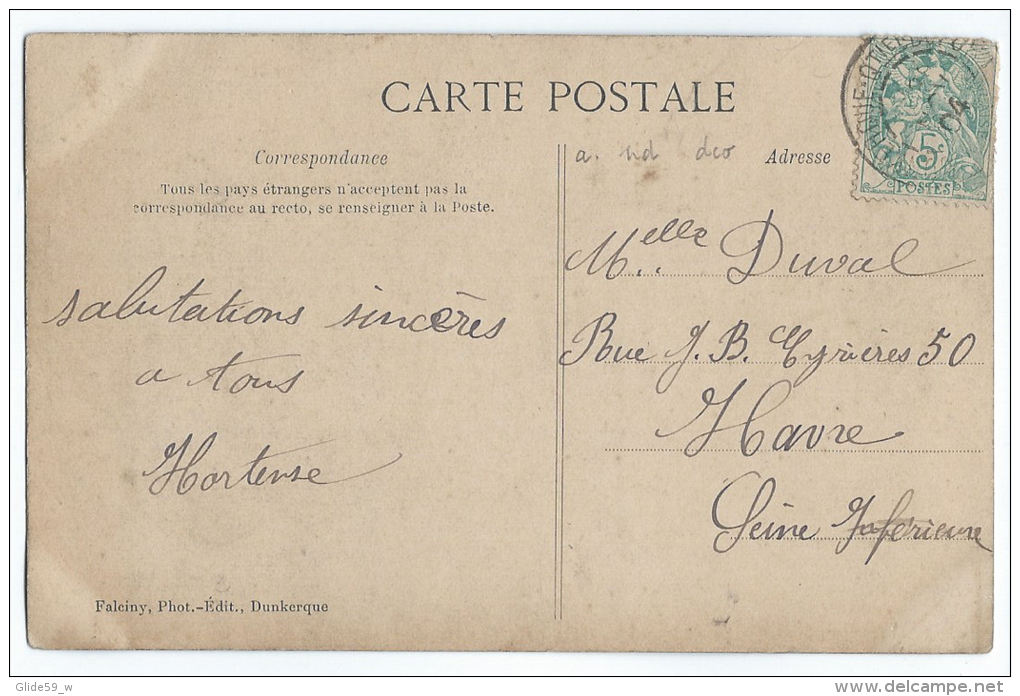 CARTE POSTALE
Correspondance
Tous les pays étrangers n'acceptent pas la
correspondance au recto, se renseigner à la Poste.
salutations sincères
a tous
Hortense
Falciny, Phot.-Édit., Dunkerque
a.
Adresse
5c
POSTES
04
Melle Duval
Rue J. B. Eyriès 50
Havre
Seine Inférieure
Glide59_w
www.delcampe.net